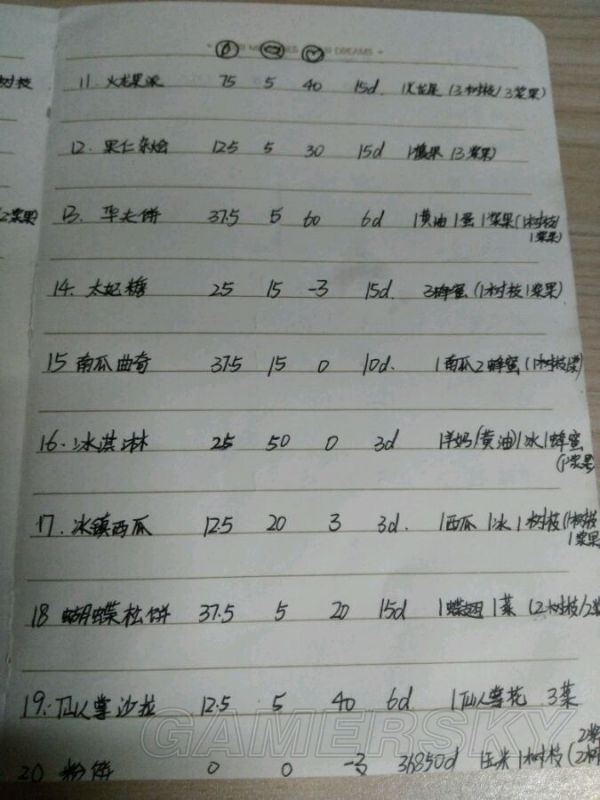 DREAMS
树枝
11. 火龙果派 75 5 40 15d 1火龙果 (3树枝/3浆果)
12. 果仁杂烩 12.5 5 30 15d (3浆果)
2浆果)
13. 华夫饼 37.5 5 60 6d 1黄油1蛋1浆果(1树枝/
1浆果)
14. 太妃糖 25 15 -3 15d. 3蜂蜜(1树枝1浆果)
15 南瓜曲奇 37.5 15 0 10d. 1南瓜2蜂蜜(1树枝1浆)
16. 冰淇淋 25 50 0 3d 1羊奶(黄油)1冰1蜂蜜
(1浆果)
17. 冰镇西瓜 12.5 20 3 3d. 1西瓜1冰1树枝(1树枝
1浆果
18 蝴蝶松饼 37.5 5 20 15d 1蝶翅1菜(2树枝/2浆
19. 仙人掌沙拉 12.5 5 40 6d 1仙人掌花 3菜
20 粉饼 0 0 -3 36850d 玉米1树枝(2浆
2树
GAMERSKY